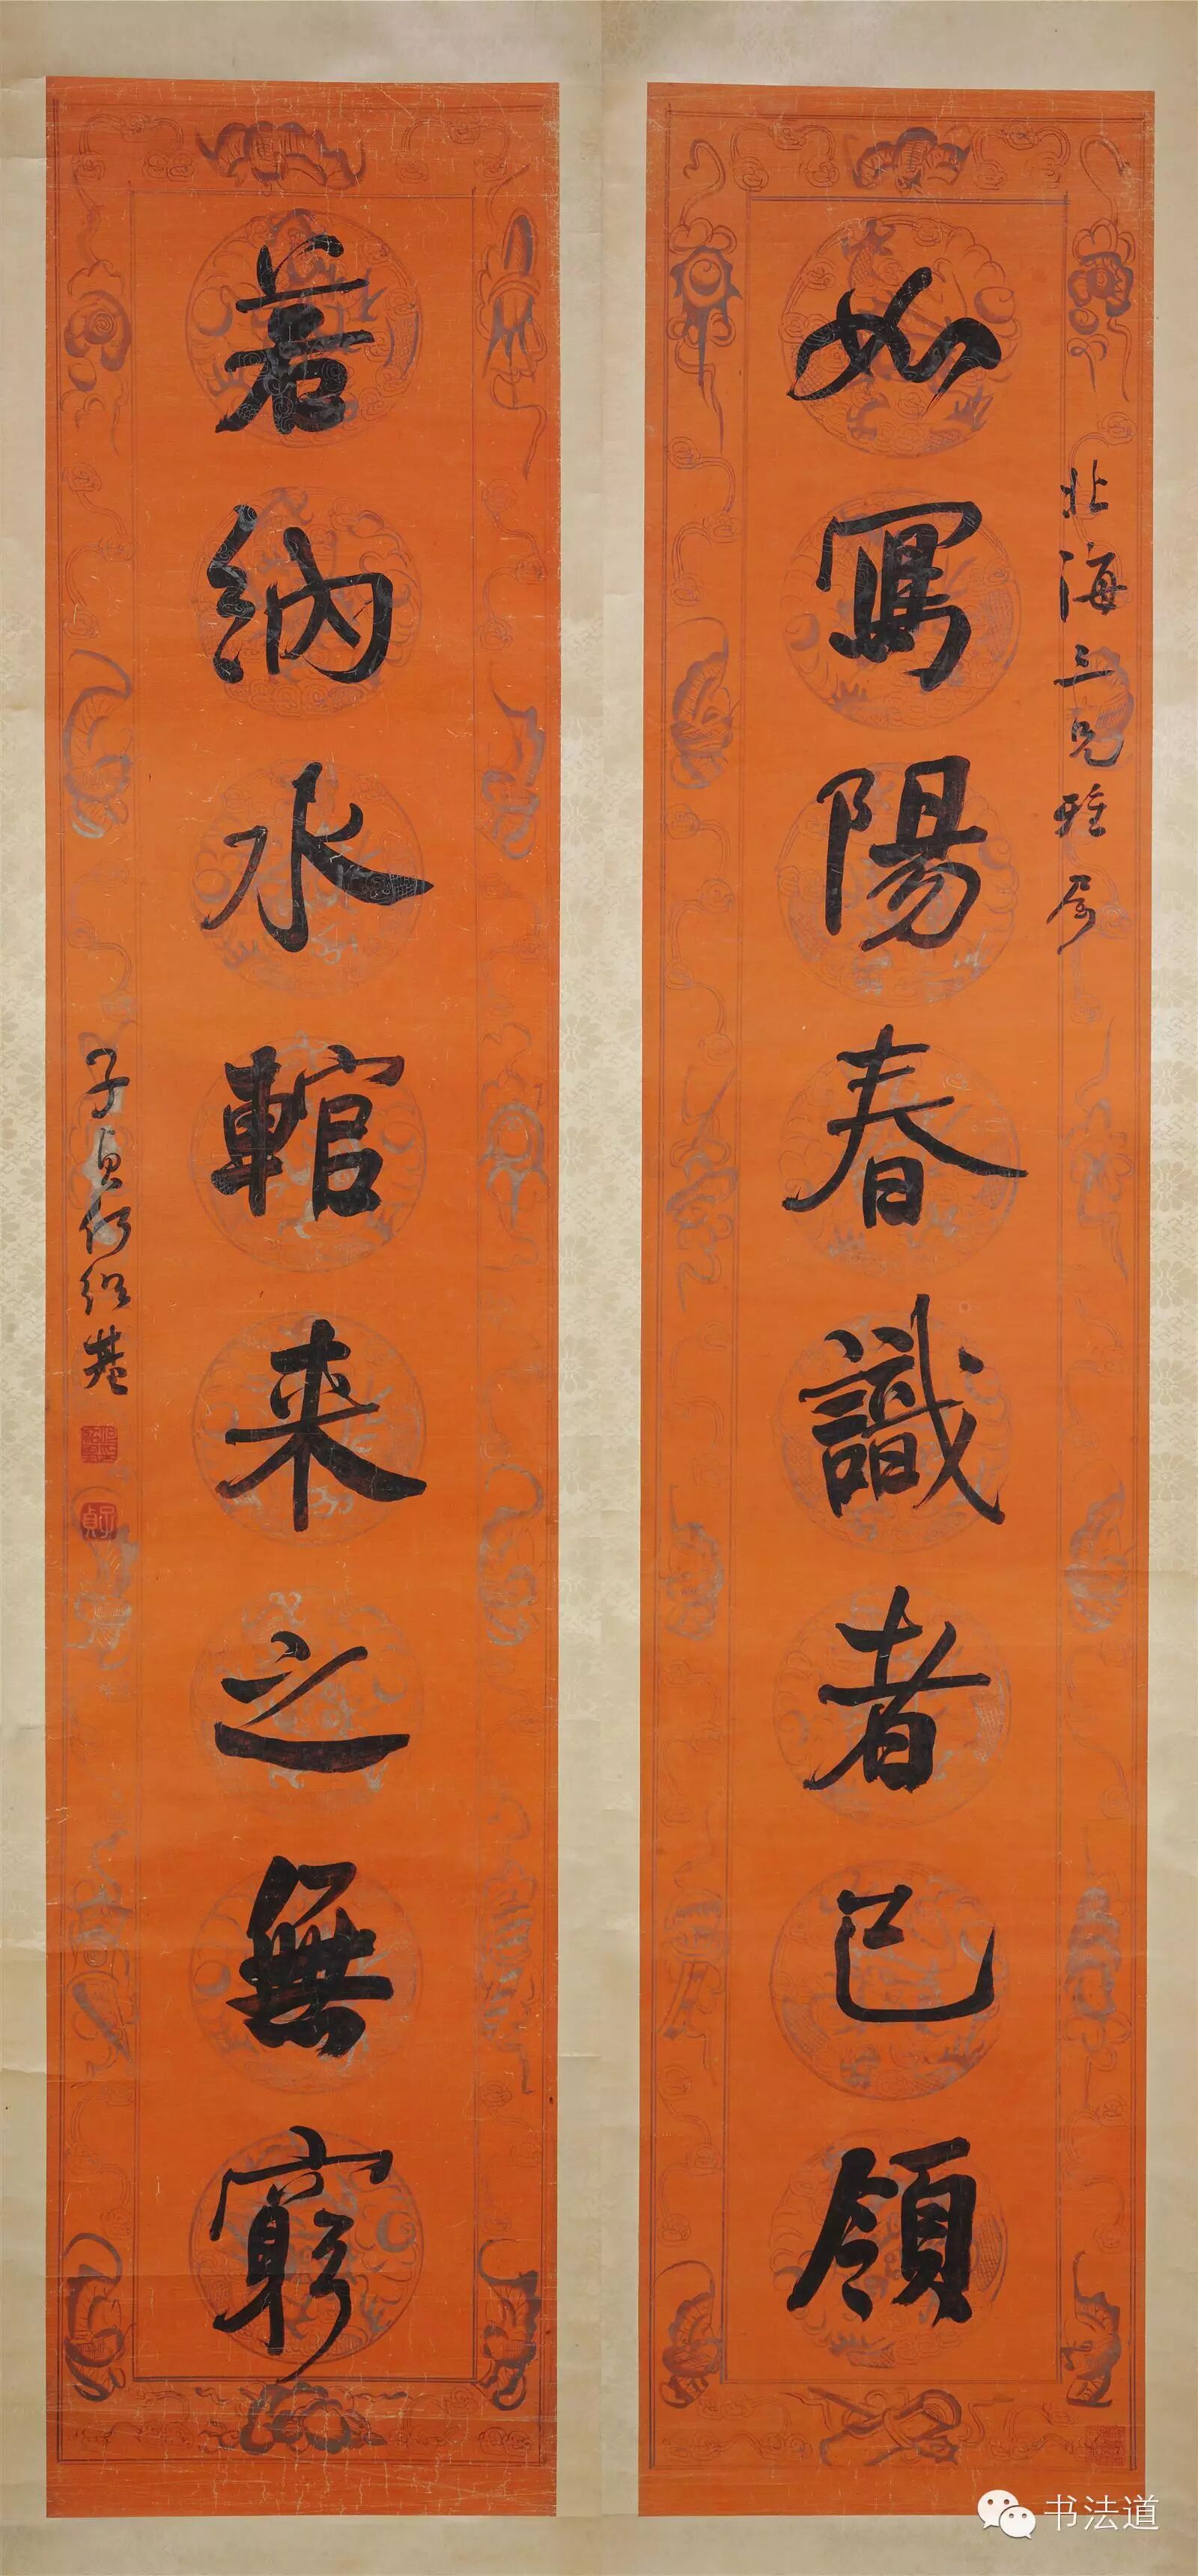 北海三兄雅屬
如寫陽春識者已領
若納水輨来之無窮
子貞何紹基
書法道